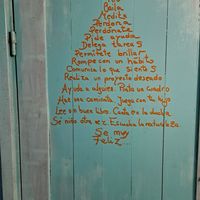 Baila
Medita
Perdona
Perdónate
Pide ayuda
Delega tareas
Permítete brillar
Rompe con un hábito
Comunica lo que sientes
Realiza un proyecto deseado
Ayuda a alguien. Pinta un cuadro
Haz una caminata. Juega con tu hijo
Lee un buen libro. Canta en la ducha
Sé niño otra vez. Escucha la naturaleza
Sé muy
Feliz...